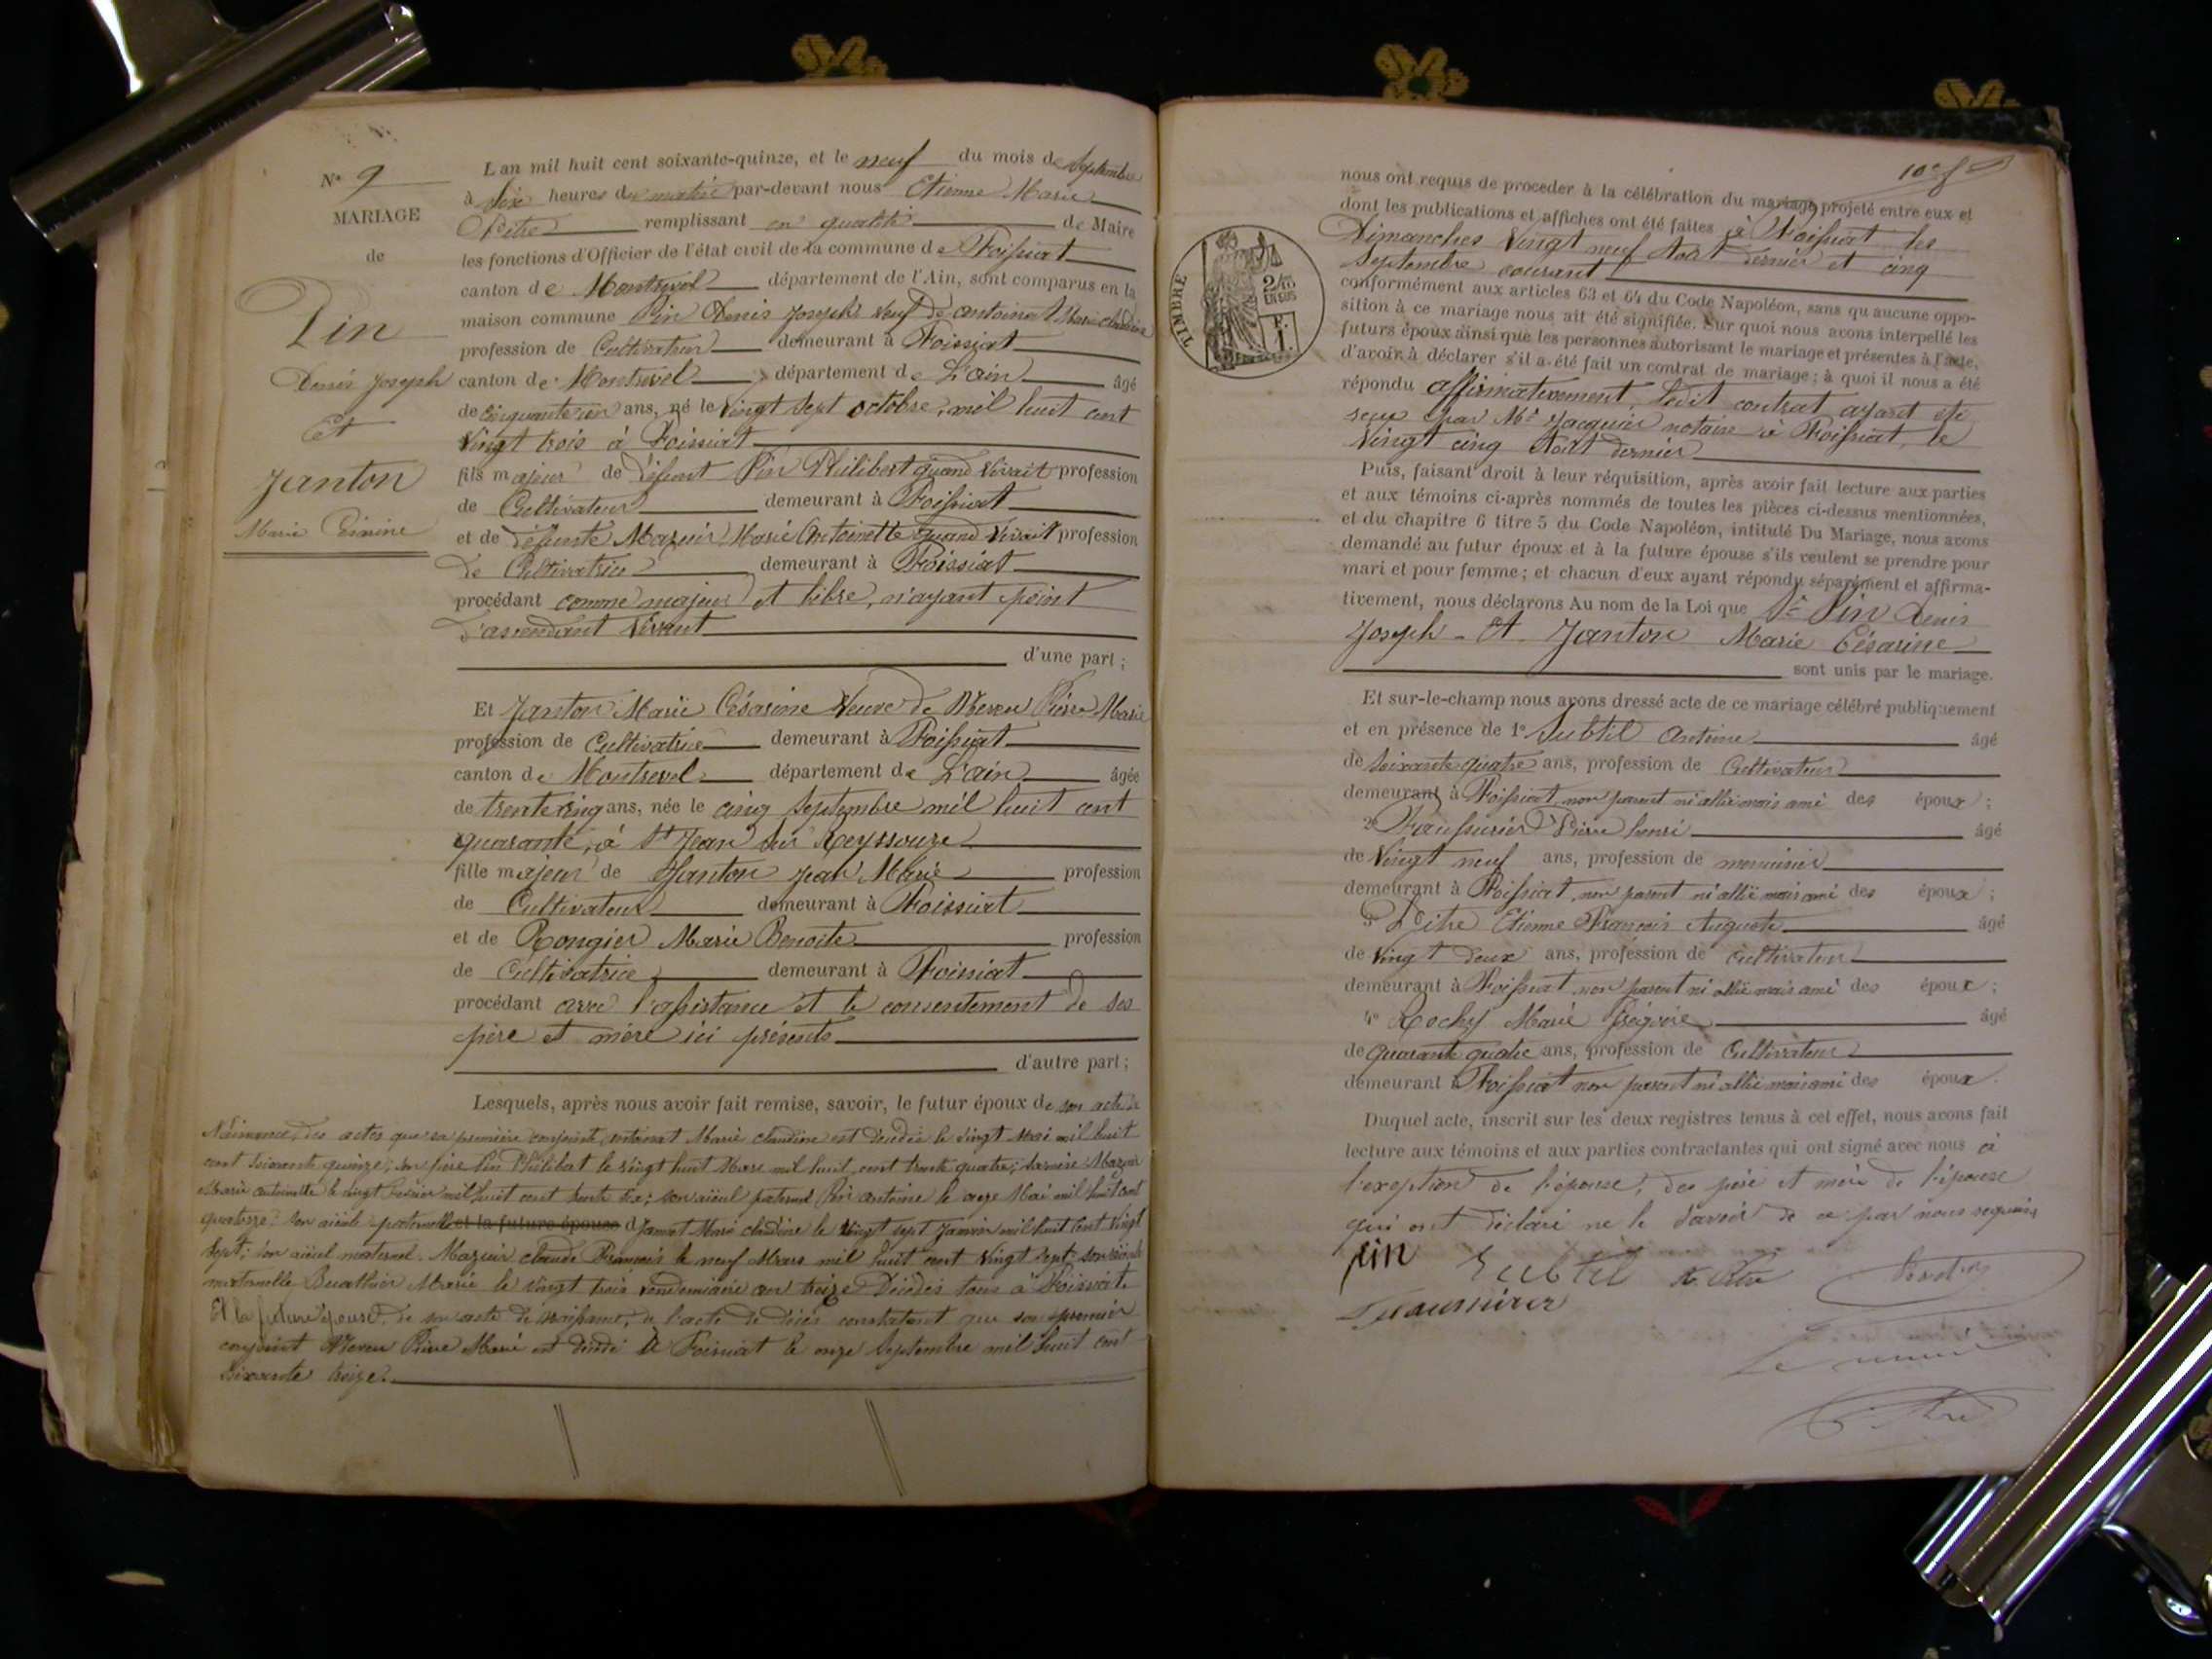 N° 9
MARIAGE
de
Pin
Denis Joseph
Et
Janton
Marie Césarine
L'an mil huit cent soixante-quinze, et le neuf du mois de Septembre
à six heures du matin par-devant nous Etienne Marie
Pitre remplissant en qualité de Maire
les fonctions d'Officier de l'état civil de la commune de Foissiat
canton de Montrevel département de l'Ain, sont comparus en la
maison commune Pin Denis Joseph Veuf de antoinat Marie claudine
profession de Cultivateur demeurant à Foissiat
canton de Montrevel département de L'ain âgé
de cinquante un ans, né le Vingt Sept octobre, mil huit cent
Vingt trois à Foissiat
fils majeur de défunt Pin Philibert quand Vivait profession
de Cultivateur demeurant à Foissiat
et de défunte Mazuir Marie Antoinette quand Vivait profession
de Cultivatrice demeurant à Foissiat
procédant comme majeur et libre, n'ayant point
d'ascendant Vivant
d'une part ;
Et Janton Marie Césarine Veuve de Pierre Marie
profession de Cultivatrice demeurant à Foissiat
canton de Montrevel département de L'ain âgée
de trente cinq ans, née le cinq Septembre mil huit cent
quarante, à St Jean Sur Reyssouze
fille majeur de Janton Jean Marie profession
de Cultivateur demeurant à Foissiat
et de Rongier Marie Benoite profession
de Cultivatrice demeurant à Foissiat
procédant avec l'assistance et le consentement de ses
père et mère ici présents
d'autre part ;
Lesquels, après nous avoir fait remise, savoir, le futur époux de son acte de
Naissance, des actes que sa première conjointe, antoinat Marie claudine est décédée le Vingt Mai mil huit
cent soixante quinze; son père Pin Philibert le Vingt huit Mars mil huit cent trente quatre; sa mère Mazuir
Marie antoinette le Vingt Fevrier mil huit cent trente six; son aïeul paternel Pin antoine le onze Mai mil huit cent
quatorze; son aïeule paternelle et la future épouse d Jannet Marie claudine le Vingt sept Janvier mil huit Cent Vingt
Sept; son aïeul maternel Mazuir claude François le neuf Mars mil huit cent Vingt Sept son aïeule
maternelle Marie le Vingt trois Vendemiaire an treize Décédés tous à Foissiat.
Et la future épouse, de son acte de naissance, de l'acte de décès constatant que son premier
conjoint Pierre Marie est décédé à Foissiat le onze Septembre mil huit cent
soixante treize.
nous ont requis de procéder à la célébration du mariage projeté entre eux et
dont les publications et affiches ont été faites à Foissiat les
Dimanches Vingt neuf Août dernier et cinq
Septembre courant
conformément aux articles 63 et 64 du Code Napoléon, sans qu'aucune oppo-
sition à ce mariage nous ait été signifiée. Sur quoi nous avons interpellé les
futurs époux ainsi que les personnes autorisant le mariage et présentes à l'acte,
d'avoir à déclarer s'il a été fait un contrat de mariage; à quoi il nous a été
répondu affirmativement ledit contrat ayant été
reçu par Me Jacquier notaire à Foissiat, le
Vingt cinq Août dernier
Puis, faisant droit à leur réquisition, après avoir fait lecture aux parties
et aux témoins ci-après nommés de toutes les pièces ci-dessus mentionnées,
et du chapitre 6 titre 5 du Code Napoléon, intitulé Du Mariage, nous avons
demandé au futur époux et à la future épouse s'ils veulent se prendre pour
mari et pour femme; et chacun d'eux ayant répondu séparément et affirma-
tivement, nous déclarons Au nom de la Loi que Pin Denis
Joseph - Et Janton Marie Césarine
sont unis par le mariage.
Et sur-le-champ nous avons dressé acte de ce mariage célébré publiquement
et en présence de 1° Subtil Antoine âgé
de Soixante quatre ans, profession de Cultivateur
demeurant à Foissiat, non parent ni allié mais ami des époux ;
2° Faussurier Pierre henri âgé
de Vingt neuf ans, profession de menuisier
demeurant à Foissiat, non parent ni allié mais ami des époux ;
3° Pitre Etienne François Auguste âgé
de Vingt deux ans, profession de cultivateur
demeurant à Foissiat, non parent ni allié mais ami des époux ;
4° Rochy Marie Grégoire âgé
de quarante quatre ans, profession de Cultivateur
demeurant à Foissiat non parent ni allié mais ami des époux.
Duquel acte, inscrit sur les deux registres tenus à cet effet, nous avons fait
lecture aux témoins et aux parties contractantes qui ont signé avec nous à
l'exception de l'épouse, des père et mère de l'épouse
qui ont déclaré ne le Savoir de ce par nous requis
pin Subtil Pitre
Le maire
Pitre
TIMBRE
2/10
EN SUS